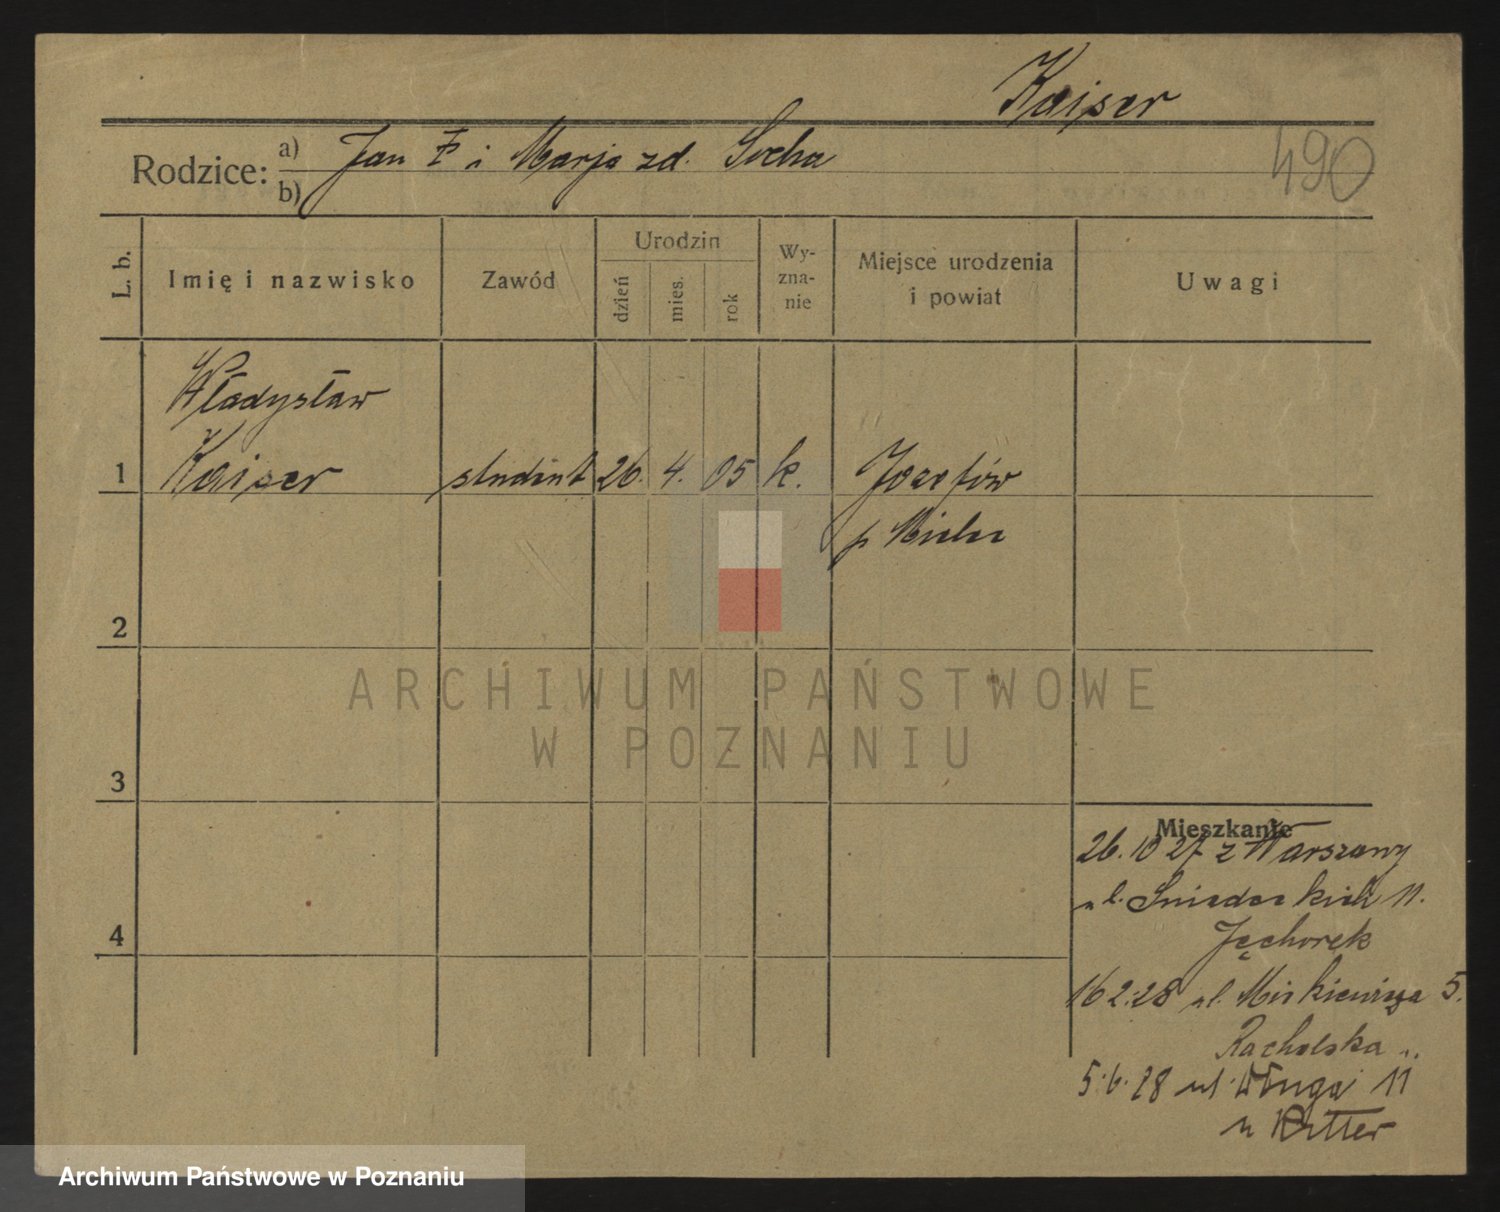 Kaiser
490
Rodzice: a) Jan i Marja zd. Socha
b)
L. b.
Imię i nazwisko
Zawód
Urodzin
dzień
mies.
rok
Wy-
zna-
nie
Miejsce urodzenia
i powiat
Uwagi
Władysław
1 Kaiser student 26. 4. 05 k. Józefów
p Mielec
2
ARCHIWUM PAŃSTWOWE
W POZNANIU
3
Mieszkanie
26.10 27 z Warszawy
ul. Śniadeckich 11.
16 2.28 ul. Mickiewicza 5.
5.6.28 ul. Długa 11
u Ritter
4
Archiwum Państwowe w Poznaniu